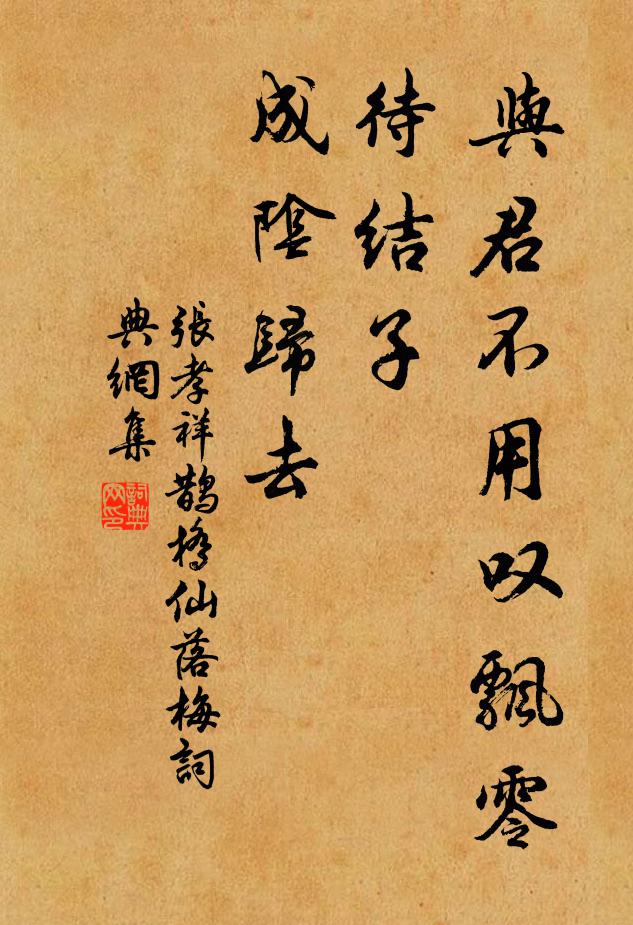 與君不用叹飄零
待结子
成陰歸去
張孝祥鵲橋仙落梅詞
典網集
詞典网印